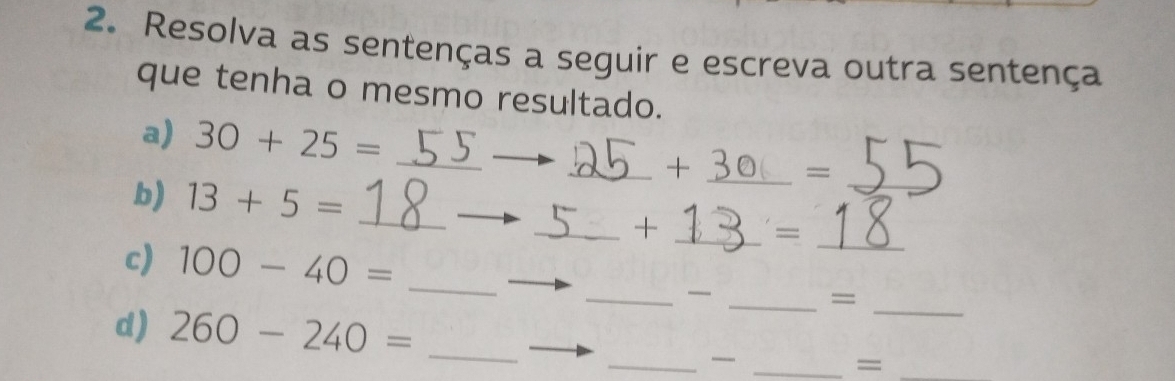 2. Resolva as sentenças a seguir e escreva outra sentença
que tenha o mesmo resultado.
a) 30 + 25 = 55 → 25 + 30 = 55
b) 13 + 5 = 18 → 5 + 13 = 18
c) 100 - 40 = ____ → ____ - ____ = ____
d) 260 - 240 = ____ → ____ - ____ = ____